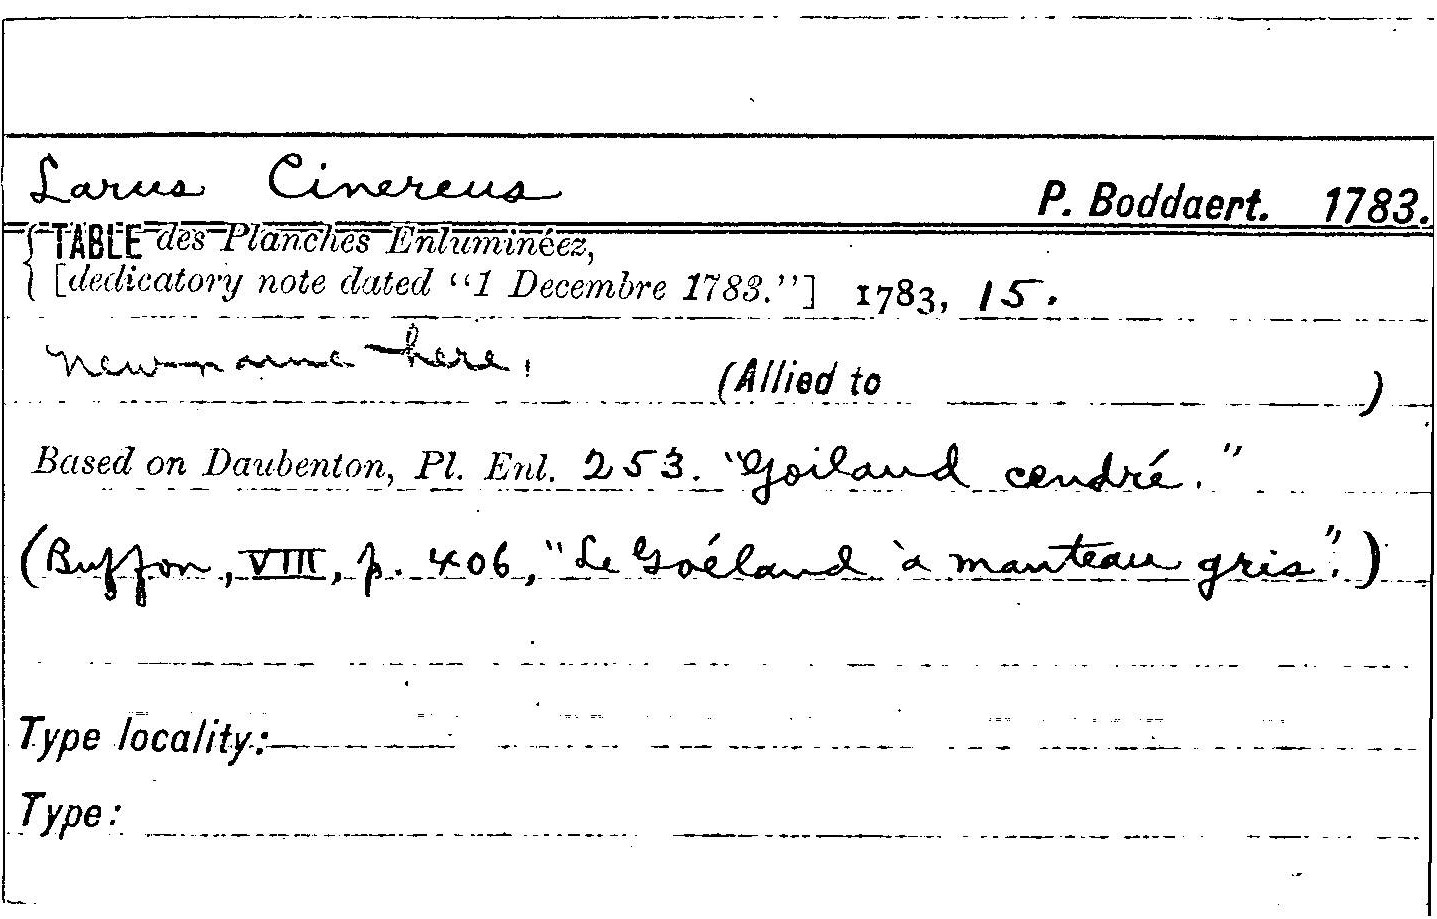 Larus Cinereus P. Boddaert. 1783.
TABLE des Planches Enluminéez,
[dedicatory note dated "1 Decembre 1783."] 1783, 15.
New name here. (Allied to )
Based on Daubenton, Pl. Enl. 253. "Goiland cendré."
(Buffon, VIII, p. 406, "Le Goéland à manteau gris".)
Type locality:
Type: